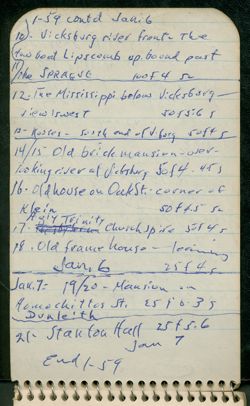 1-59 Contd Jan. 6
10 - Vicksburg river front - the
towboat Lipscomb up bound past
the SPRAGUE 100 f 4 s
12 - The Mississippi below Vicksburg -
view west 50 f 5.6 s
13 - Roses - south end of Vburg 50 f 4 s
14/15 - Old brick mansion - over-
looking river at Vicksburg 50 f 4 - 4.5 s
16 - Old house on Oak St. corner of
Klein 50 f 4.5 s
Holy Trinity
17 - Church spire 50 f 4 s
18 - Old frame house - leaning
Jan. 6 25 f 4 s
Jan. 7: 19/20 - Mansion on
Homochitto St. 25 f 6.3 s
Dunleith
21 - Stanton Hall 25 f 5.6
Jan 7
End 1-59